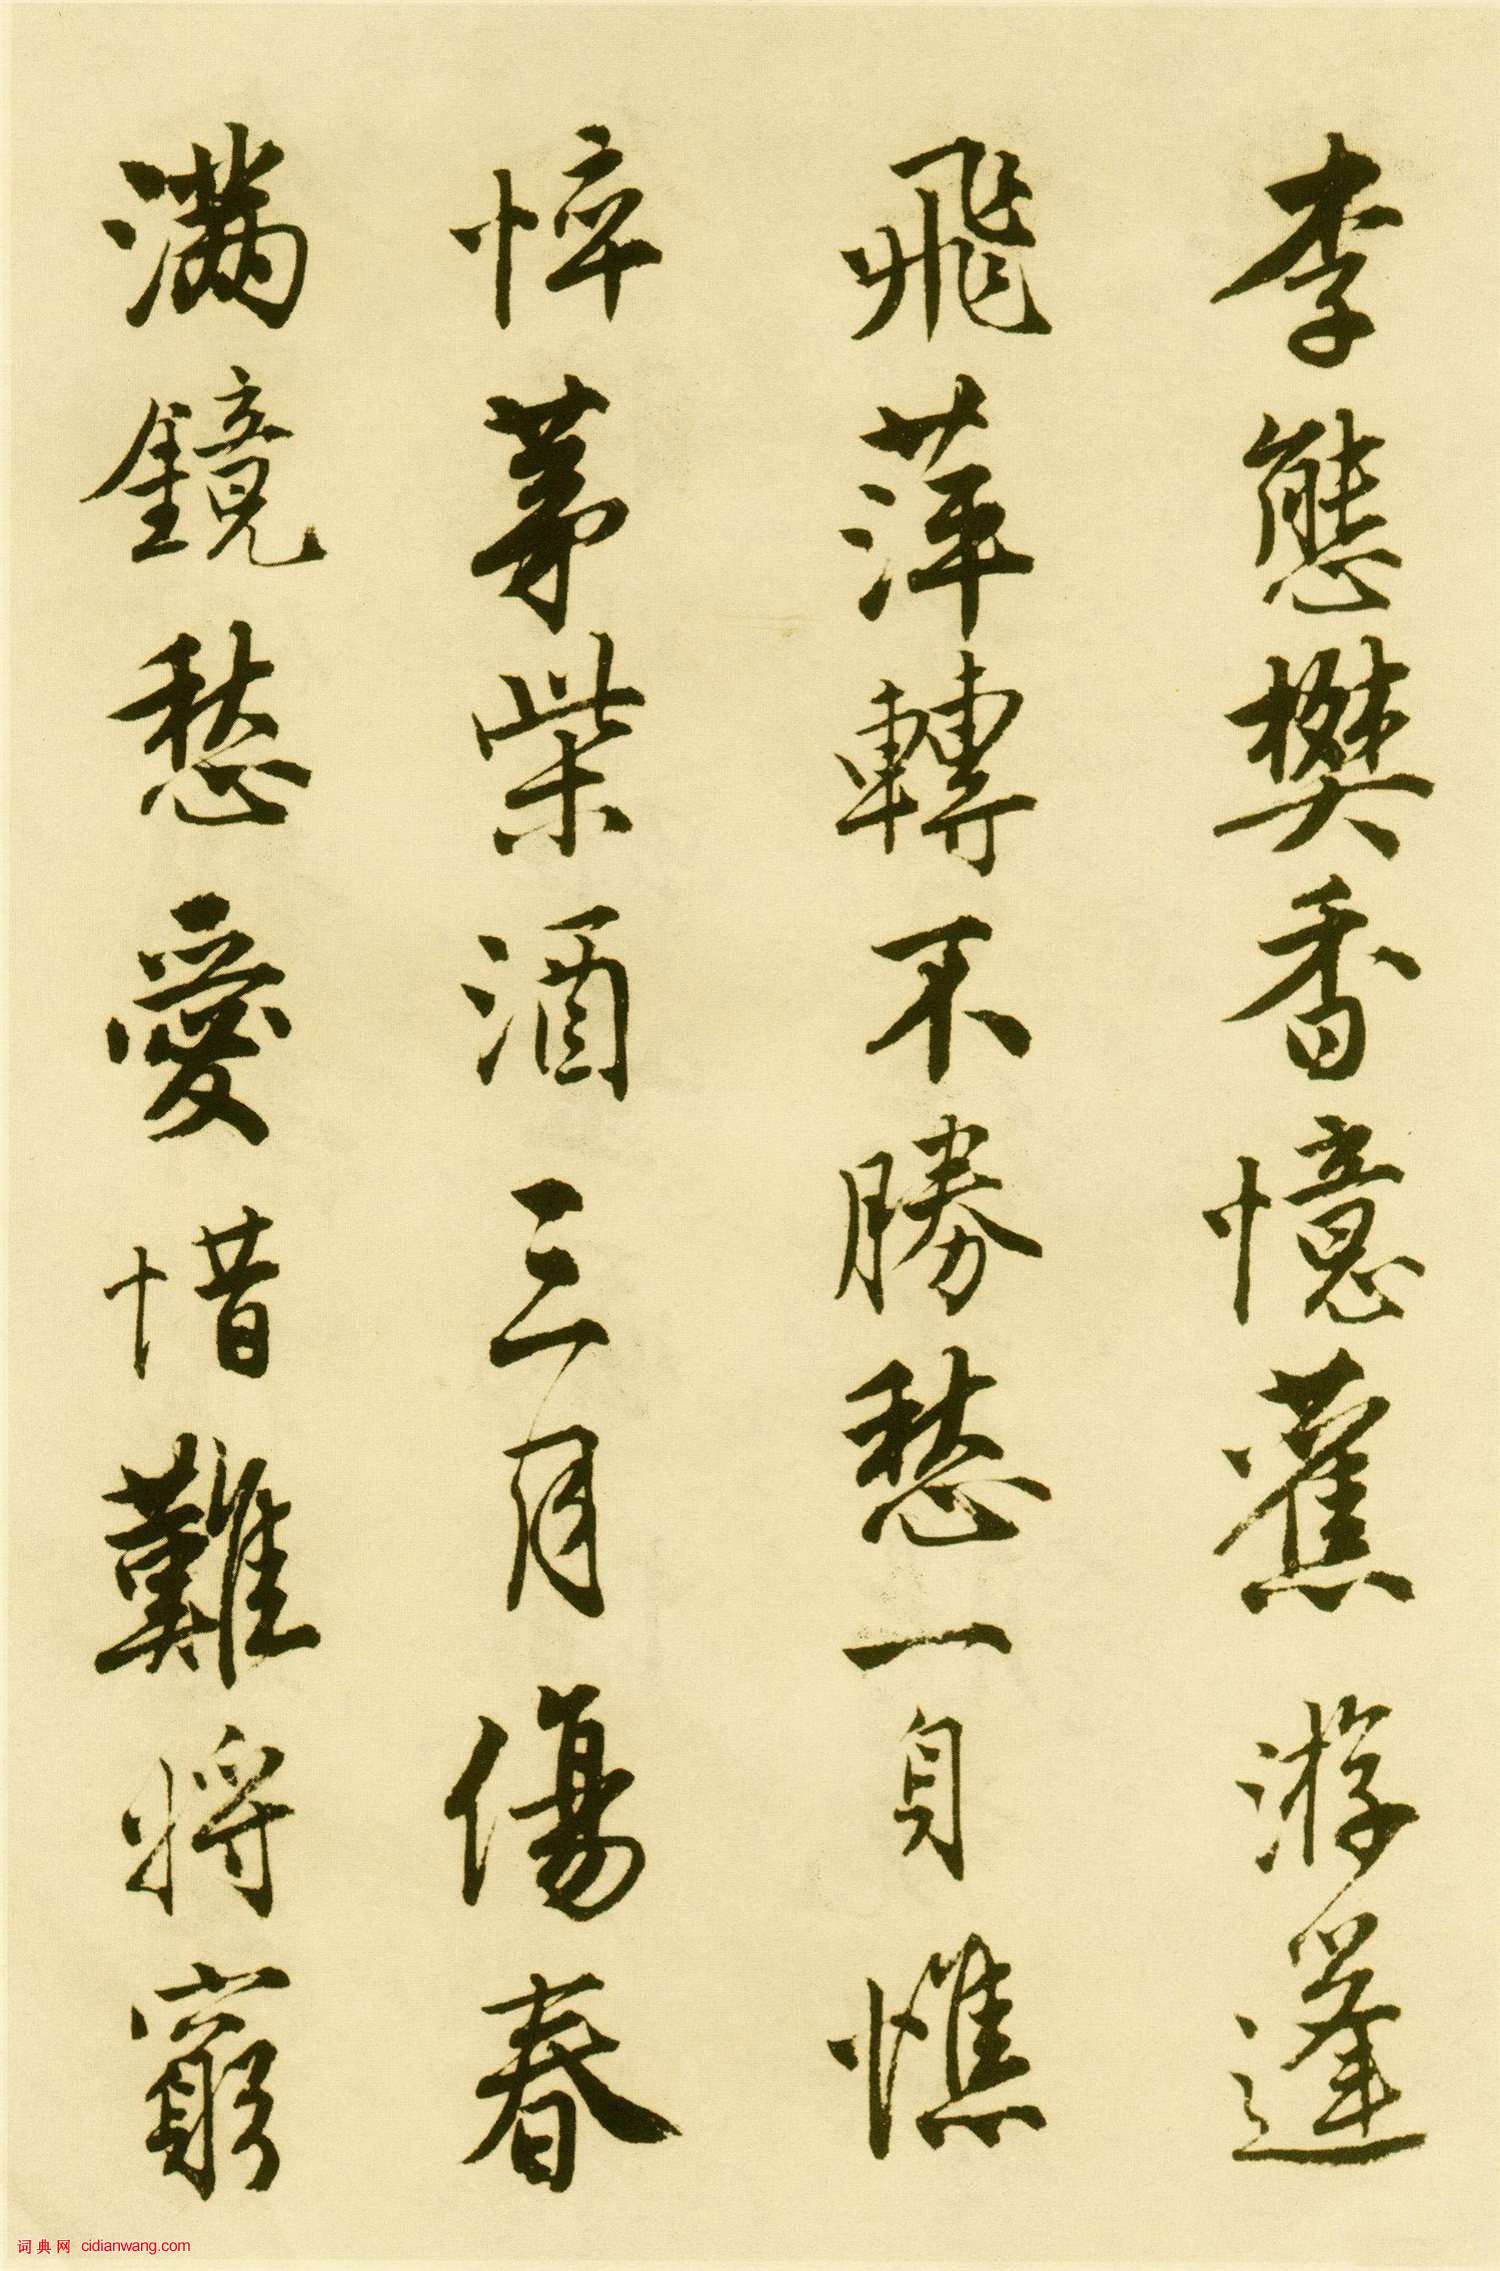 李態樊香憶舊游蓬
飛萍轉不勝愁一身憔
悴茅柴酒三月傷春
滿鏡愁愛惜難將窮
词典网 cidianwang.com